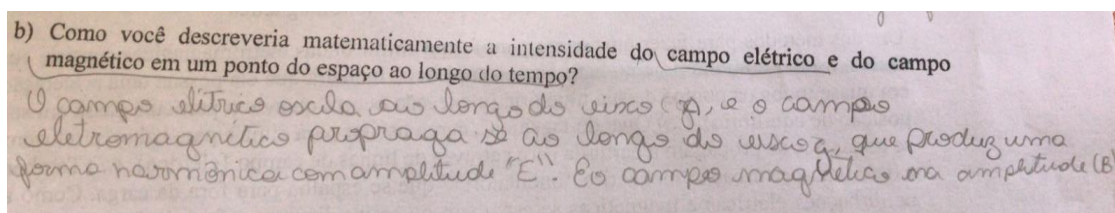 b) Como você descreveria matematicamente a intensidade do campo elétrico e do campo
magnético em um ponto do espaço ao longo do tempo?
O campo elétrico oscila ao longo do eixo (y), e o campo
eletromagnético propraga se ao longo do eixo x, que produz uma
forma harmônica com amplitude "E". Eo campo magnético na amplitude (B)